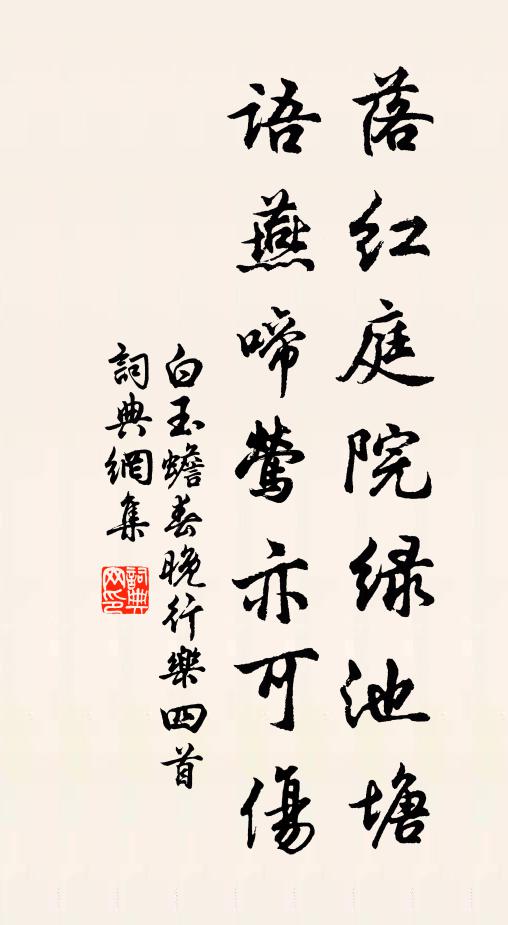 落红庭院绿池塘
语燕啼莺亦可傷
白玉蟾春晚行樂四首
詞典網集
詞典網印